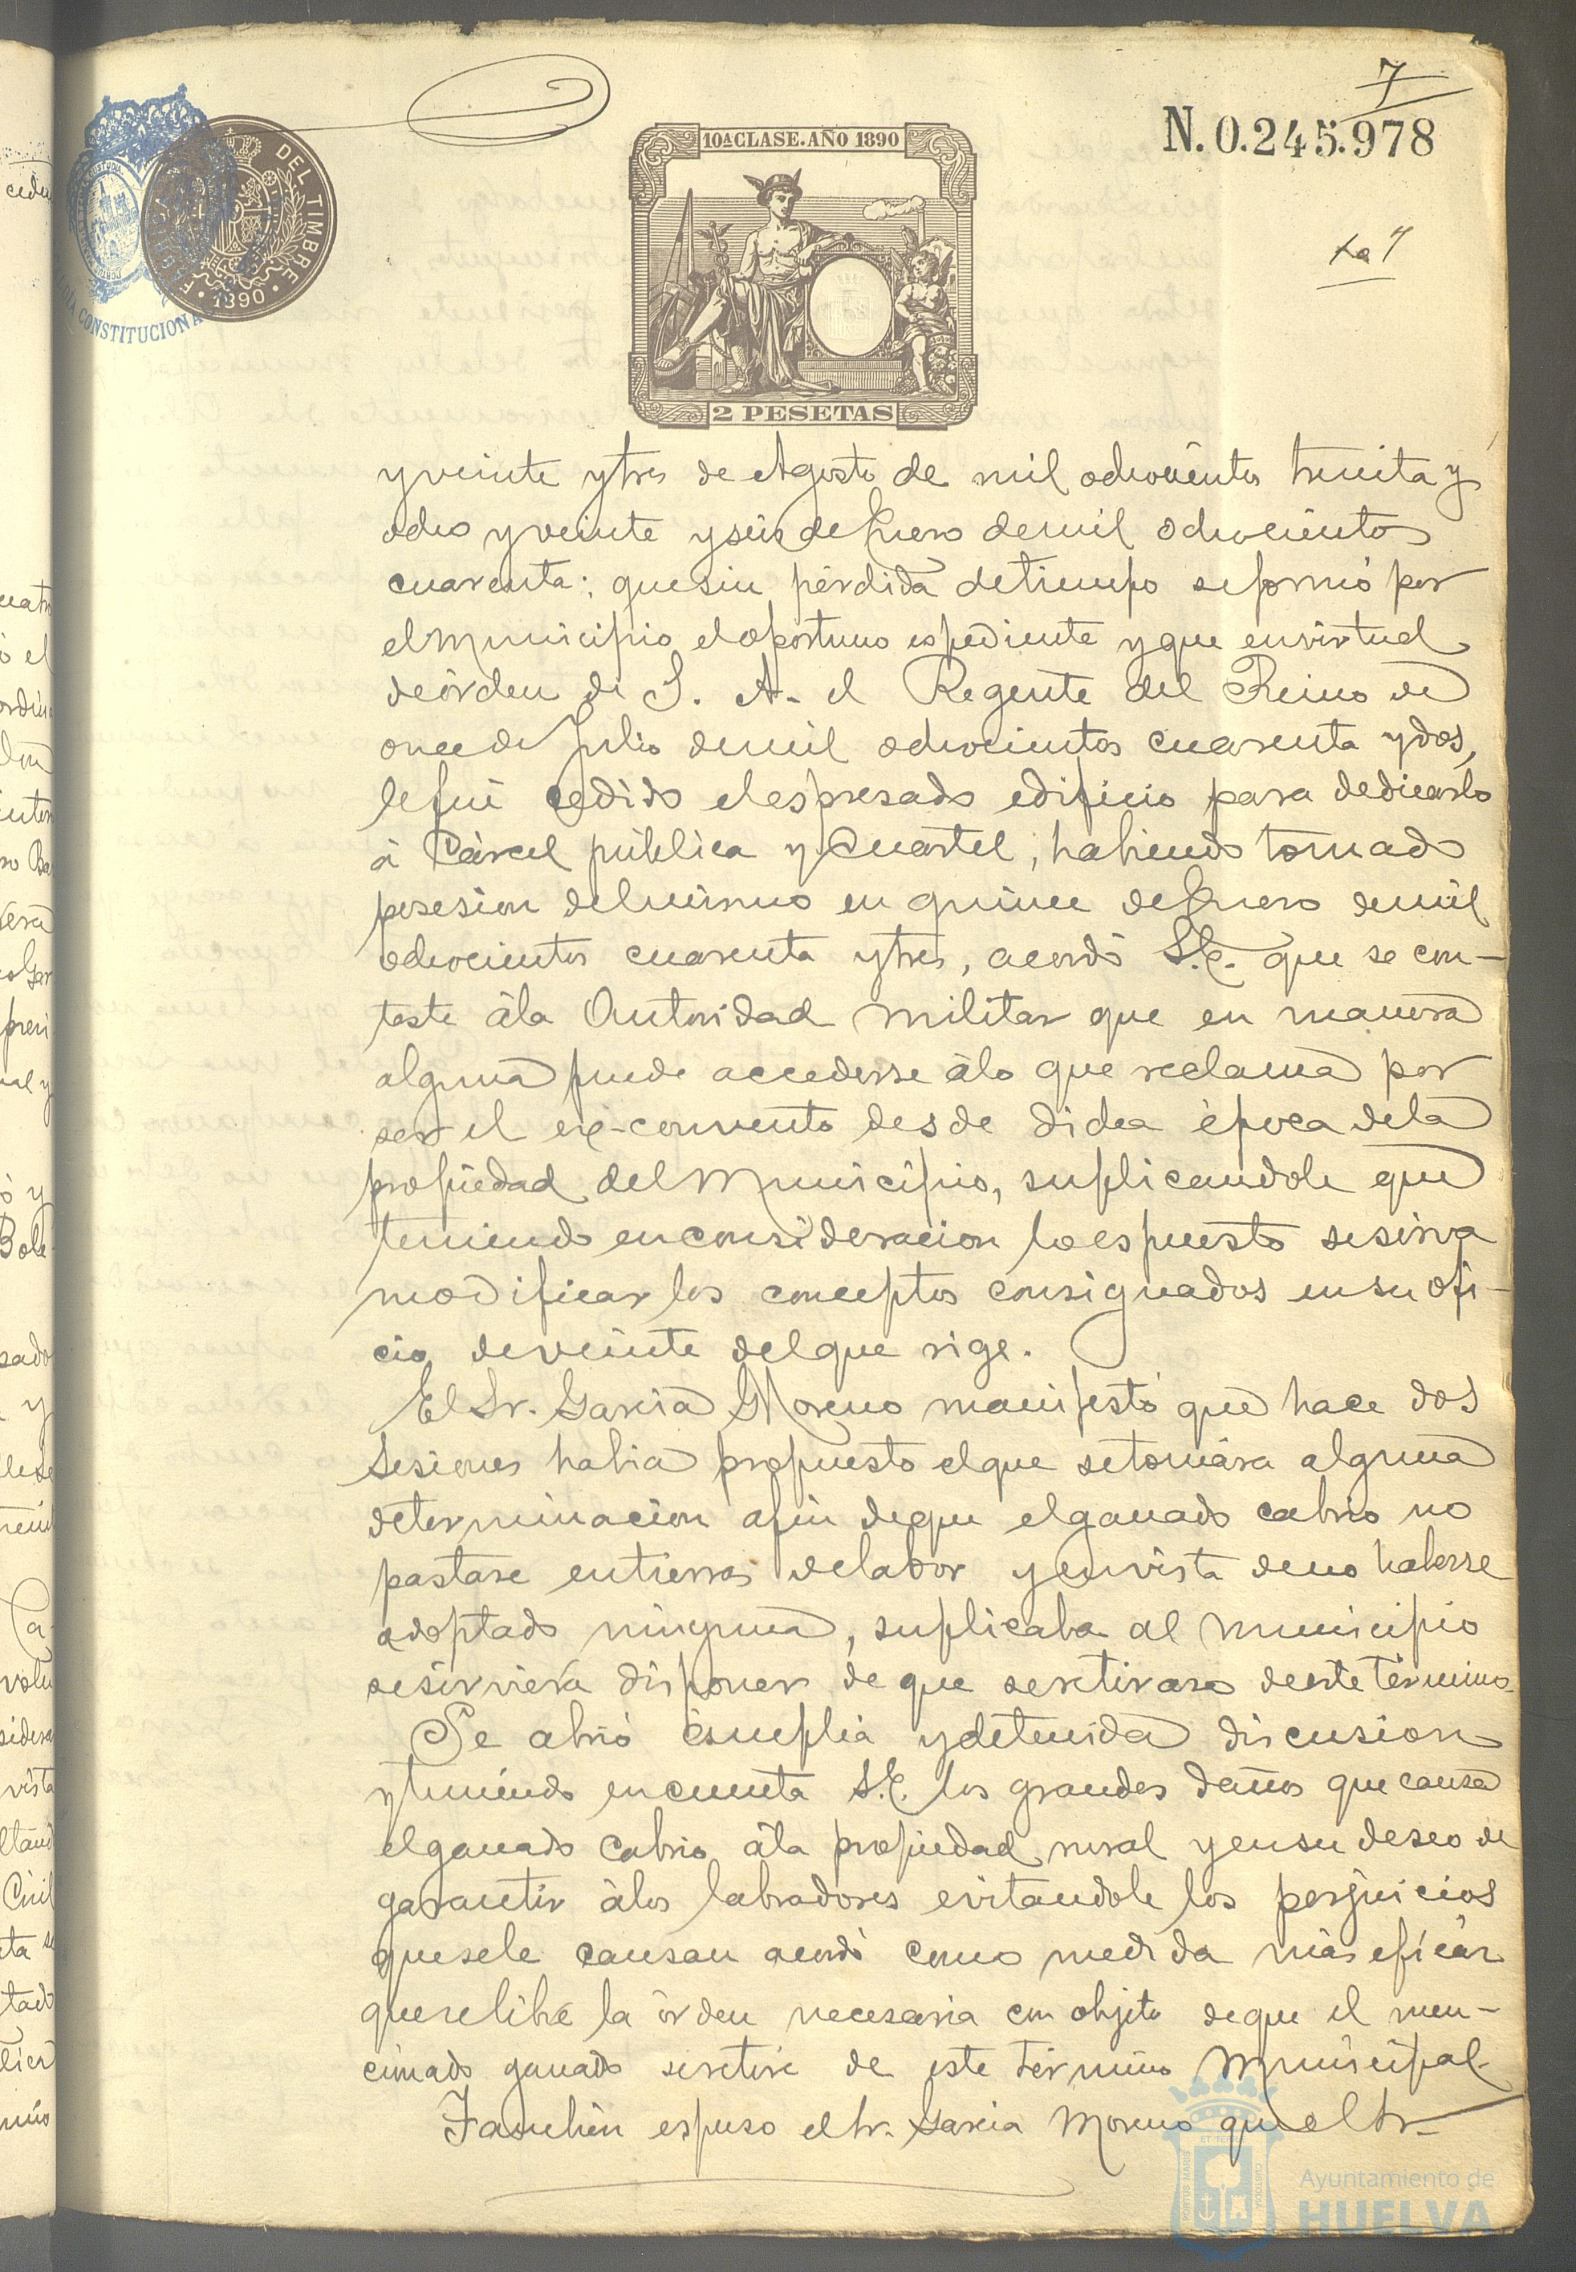 7
N. 0.245.978
10ª CLASE. AÑO 1890
DEL TIMBRE
1890
CONSTITUCIONAL
2 PESETAS
y veinte y tres de Agosto de mil ochocientos treinta y
ocho y veinte y seis de Enero de mil ochocientos
cuarenta; que sin pérdida de tiempo se formó por
el Municipio el oportuno espediente y que en virtud
de órden de S. A. el Regente del Reino de
once de Julio de mil ochocientos cuarenta y dos,
le fué cedido el espresado edificio para dedicarlo
á Cárcel pública y Cuartel, habiendo tomado
posesion del mismo en quince de Enero de mil
ochocientos cuarenta y tres, acordó S.E. que se con-
teste á la Autoridad militar que en manera
alguna puede accederse á lo que reclama por
ser el ex-convento desde dicha época de la
propiedad del Municipio, suplicandole que
teniendo en consideracion lo espuesto se sirva
modificar los conceptos consignados en su ofi-
cio de veinte del que rige.
El Sr. Garcia Moreno manifestó que hace dos
sesiones habia propuesto el que se tomára alguna
determinacion a fin de que el ganado cabrio no
pastase en tierras de labor y en vista de no haberse
adoptado ninguna, suplicaba al Municipio
se sirviera disponer de que se retirara de este término.
Se abrió ámplia y detenida discusion
y teniendo en cuenta S.E. los grandes daños que causa
el ganado cabrio á la propiedad rural y en su deseo de
garantir á los labradores evitandole los perjuicios
que se le causan acordó como medida más eficáz
que se libre la órden necesaria con objeto de que el men-
cionado ganado se retire de este término Municipal.
Tambien espuso el Sr. Garcia Moreno que el Sr.
Ayuntamiento de
HUELVA